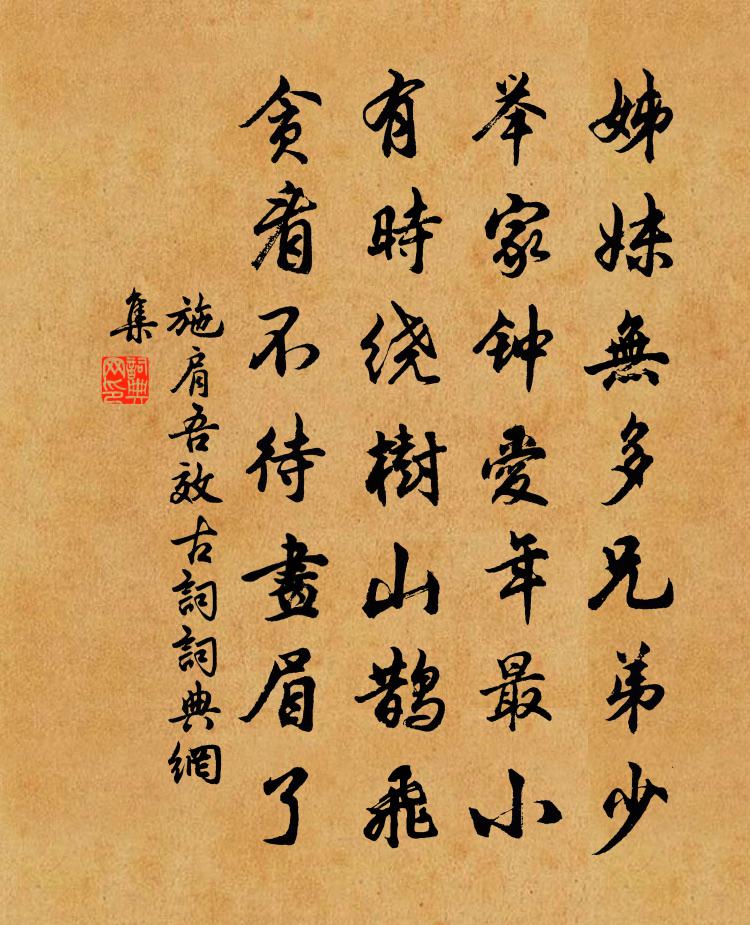 姊妹無多兄弟少
举家钟愛年最小
有時绕樹山鵲飛
贪看不待畫眉了
施肩吾效古詞詞典網
集
詞典网印